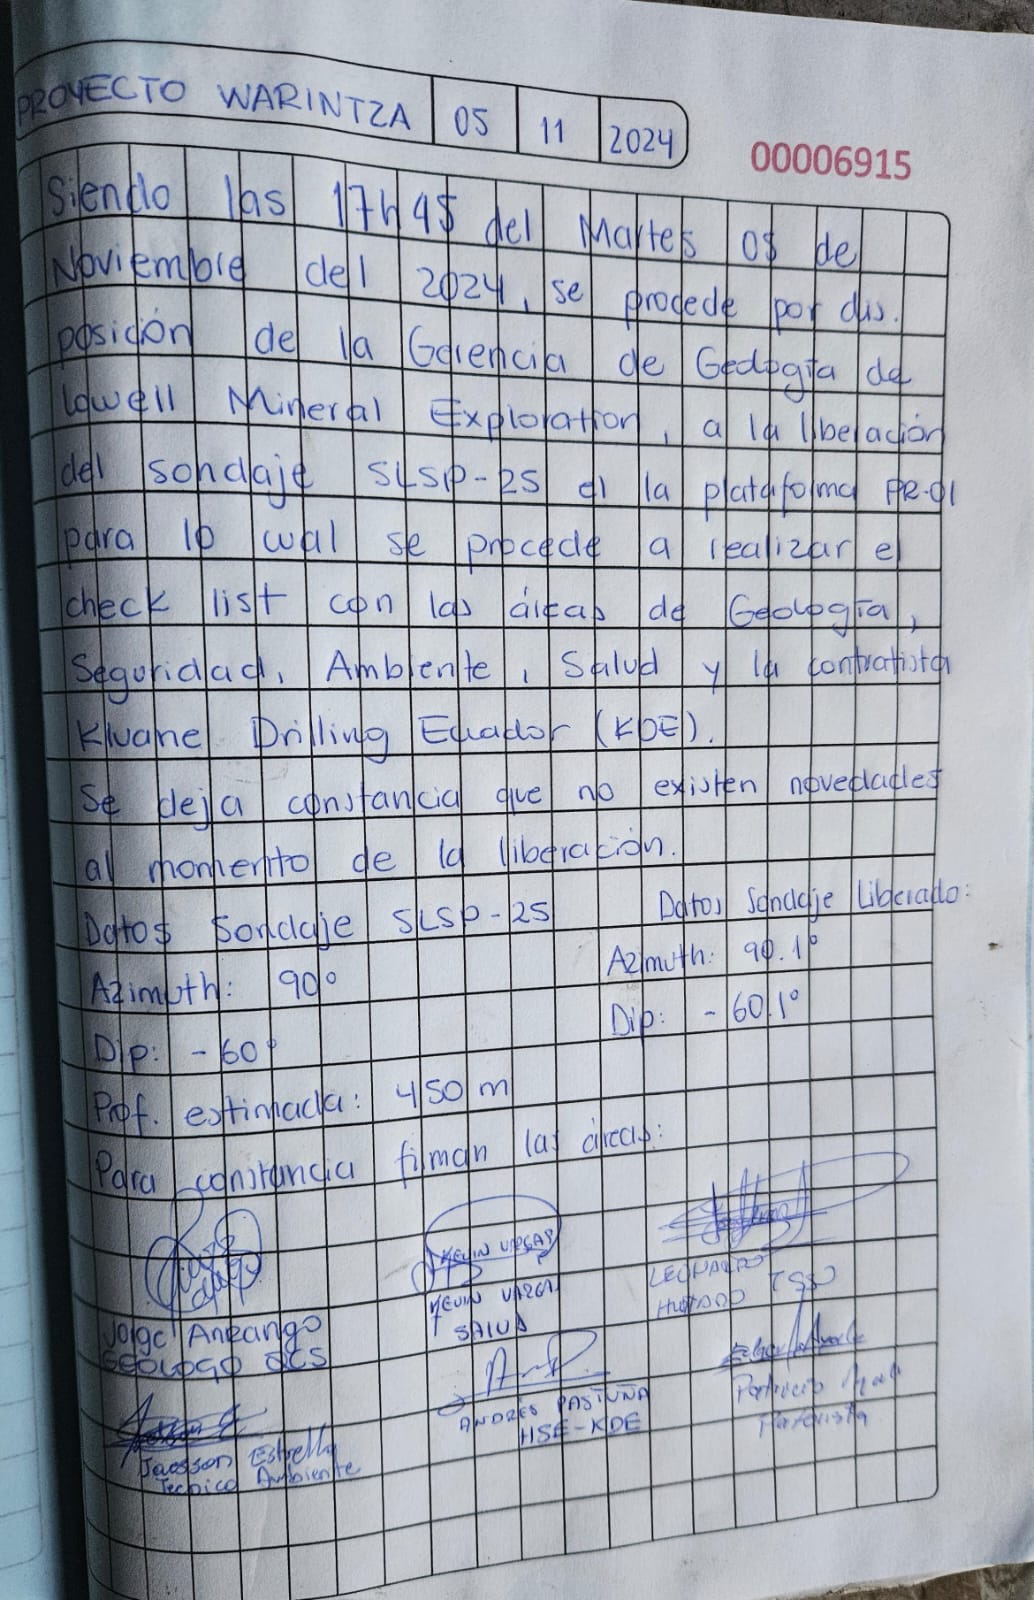 PROYECTO WARINTZA 05 11 2024
00006915
Siendo las 17h45 del Martes 05 de
Noviembre del 2024, se procede por dis.
posición de la Gerencia de Geología de
Lowell Mineral Exploration, a la liberación
del sondaje SLSP-25 el la plataforma PR-01
para lo cual se procede a realizar el
check list con las áreas de Geología,
Seguridad, Ambiente, Salud y la contratista
Kluane Drilling Ecuador (KDE).
Se deja constancia que no existen novedades
al momento de la liberación.
Datos Sondaje SLSP-25 Datos Sondaje Liberado:
Azimuth: 90° Azimuth: 90.1°
Dip: -60° Dip: -60.1°
Prof. estimada: 450 m
Para constancia firman las áreas:
KEVIN VARGAS
Jorge Anrango KEVIN VARGAS LEONARDO
GEÓLOGO SALUD HURTADO TSSO
ANDRÉS PASTUÑA Patricio
HSE-KDE
Jaesson Estrella
Tecnico Ambiente